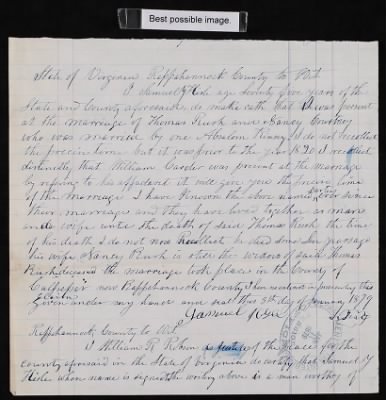 Best possible image.
State of Virginia Rappahannock County to Wit
I Samuel Hisle age seventy five years of the
State and County aforesaid do make oath that I was present
at the marriage of Thomas Rush and Nancy Courtney
who was married by one Absalom I do not recollect
the precise time but it was prior to the year 1820 I recollect
distinctly that William Carder was present at the marriage
by refering to his affidavit it will give you the precise time
of the marriage I have known the above named parties ever since
their marriage and they have lived together as man
and wife until the death of said Thomas Rush the time
of his death I do not now Recollect he died some
his wife Nancy Rush is still the widow of said Thomas
Rush deceased the marriage took place in the County of
Culpeper now Rappahannock County I have no interest in prosecuting this
claim
given under my hand and seal this 8th day of January 1879
Samuel
Rappahannock County to Wit
I William R a justice of the peace for the
county aforesaid in the State of Virginia do certify that Samuel
Hisle whose name is signed to the writing above is a man worthy of